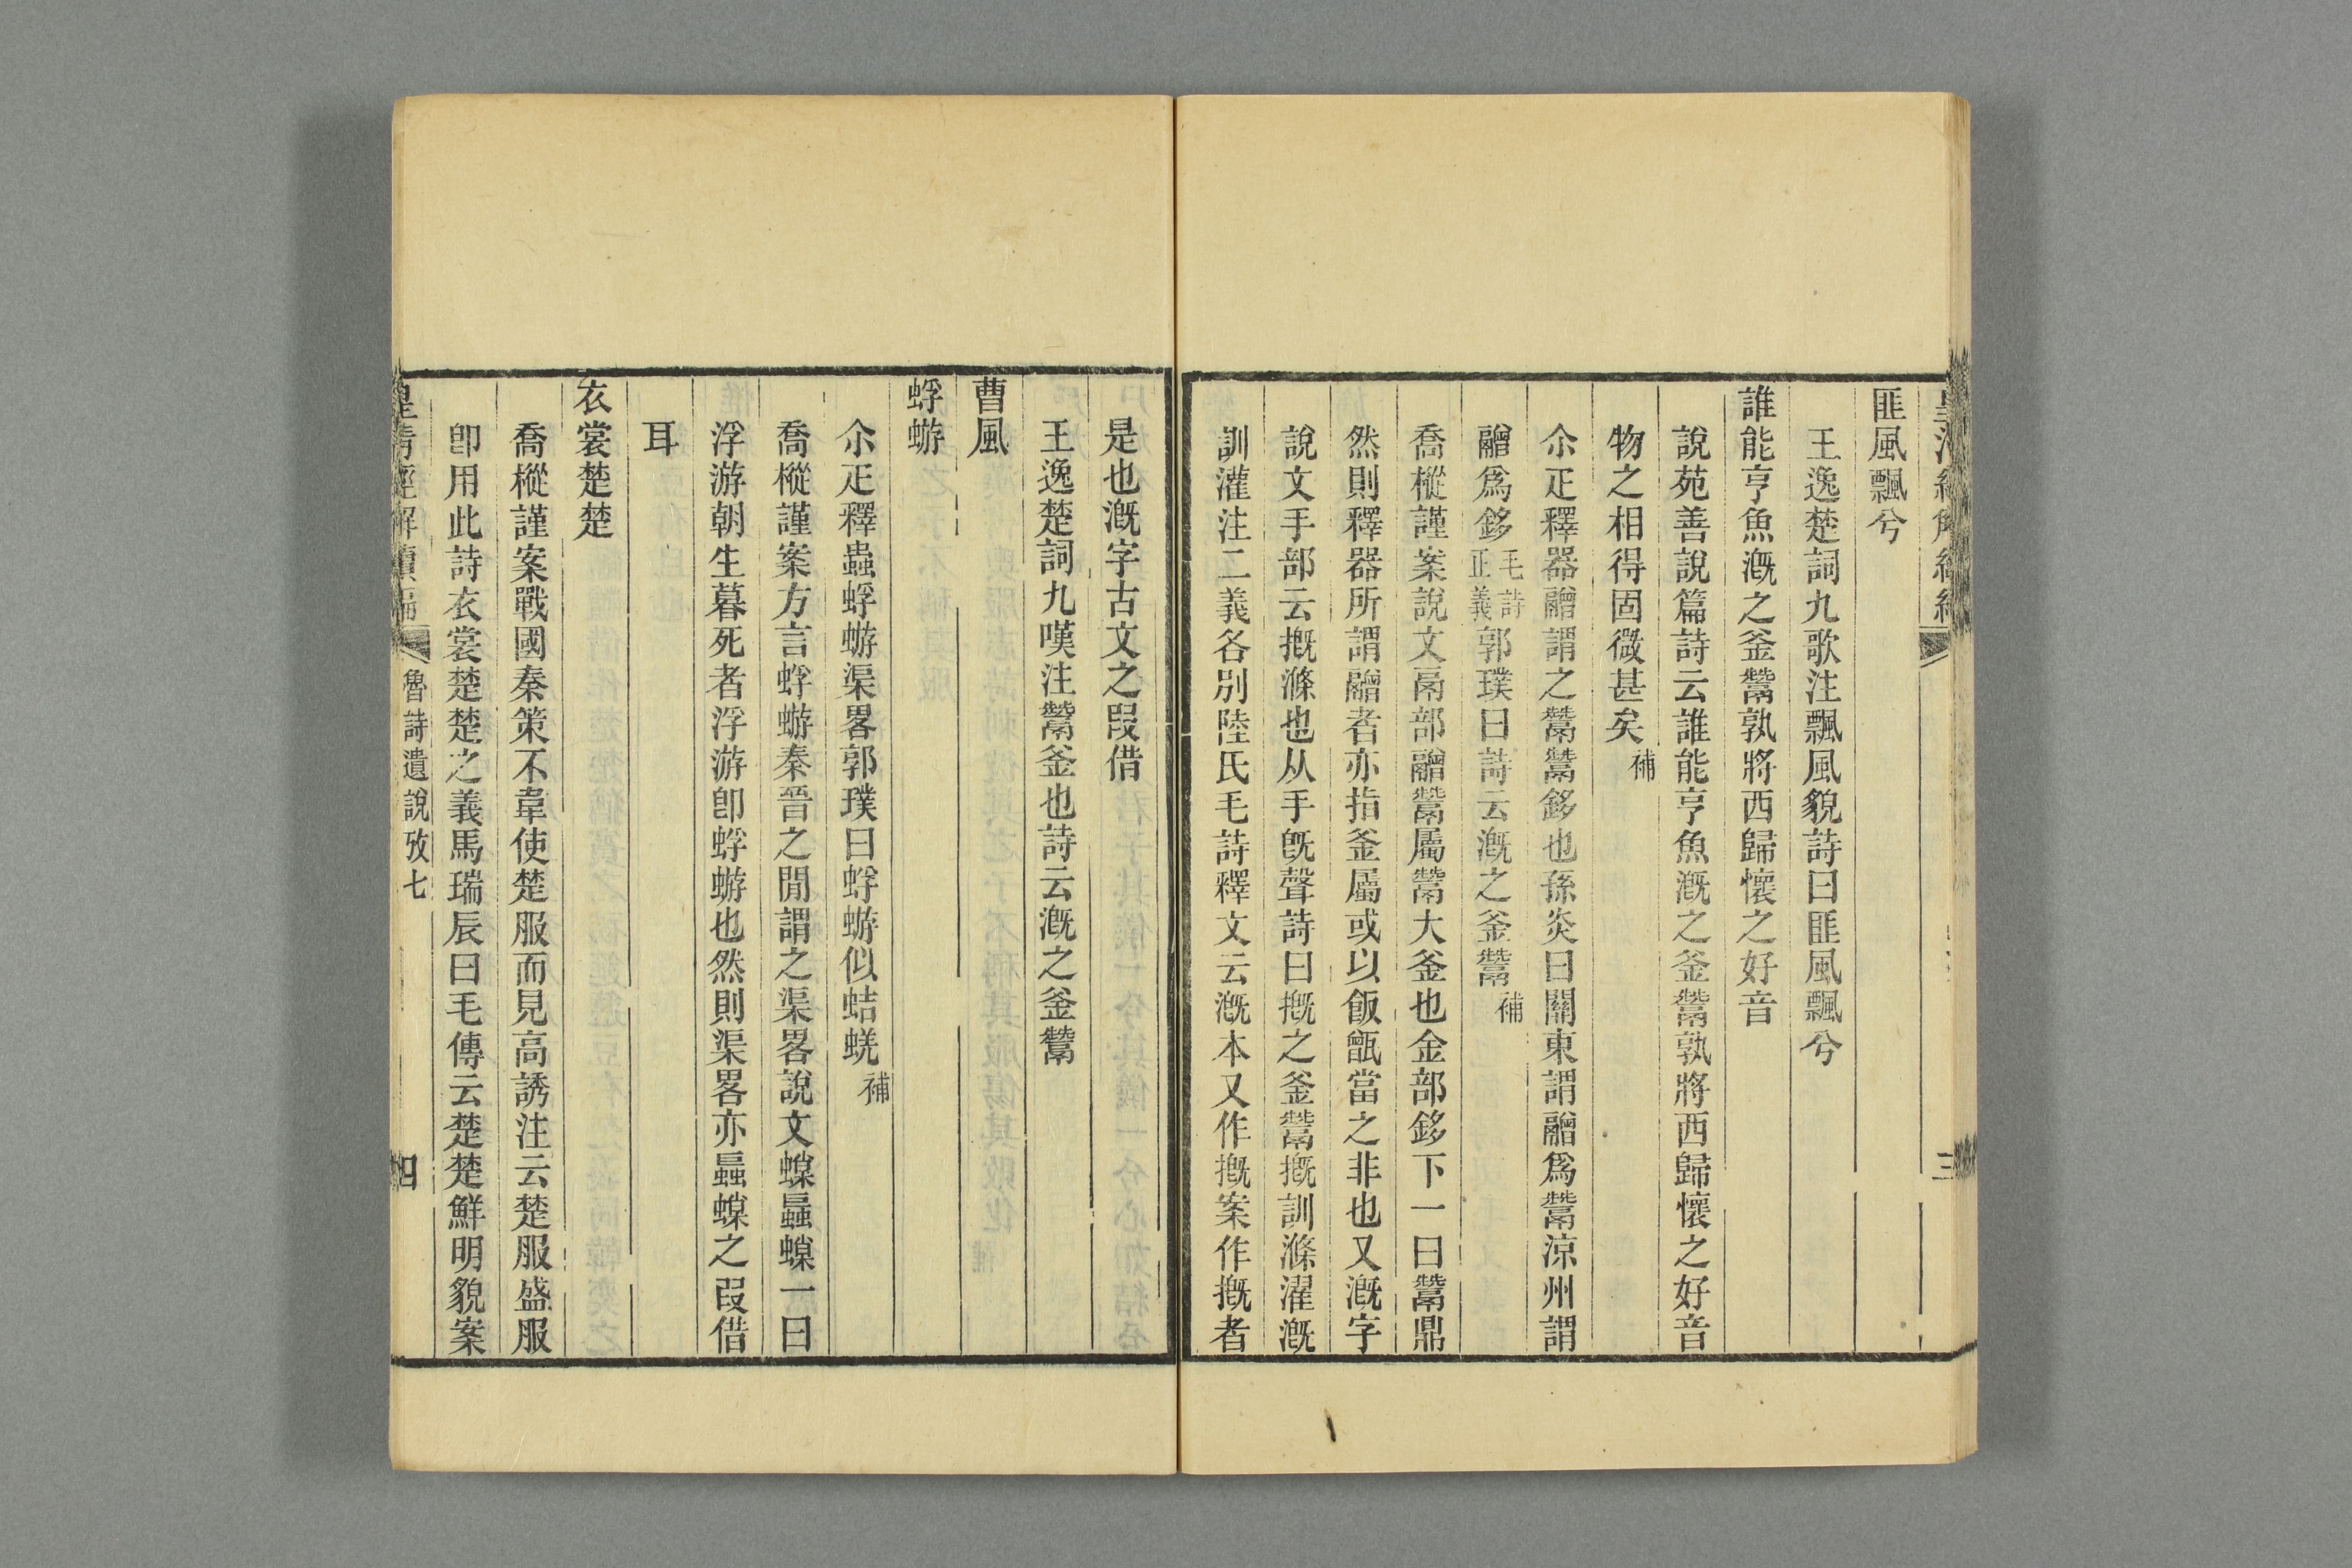 匪風飄兮
王逸楚詞九歌注飄風貌詩曰匪風飄兮
誰能亨魚漑之釜鬵孰將西歸懷之好音
說苑善說篇詩云誰能亨魚漑之釜鬵孰將西歸懷之好音
物之相得固微甚矣補
尒疋釋器䰝謂之鬵鬵鉹也孫炎曰關東謂䰝爲鬵涼州謂
䰝爲鉹毛詩正義郭璞曰詩云漑之釜鬵補
喬樅謹案說文鬲部䰝鬵屬鬵大釜也金部鉹下一曰鬵鼎
然則釋器所謂䰝者亦指釜屬或以飯甑當之非也又漑字
說文手部云摡滌也从手旣聲詩曰摡之釜鬵摡訓滌濯漑
訓灌注二義各別陸氏毛詩釋文云漑本又作摡案作摡者
是也漑字古文之叚借
王逸楚詞九嘆注鬵釜也詩云漑之釜鬵
曹風
蜉蝣
尒疋釋蟲蜉蝣渠畧郭璞曰蜉蝣似蛣蜣補
喬樅謹案方言蜉蝣秦晉之閒謂之渠畧說文螺蟲螺一曰
浮游朝生暮死者浮游卽蜉蝣也然則渠畧亦蟲螺之叚借
耳
衣裳楚楚
喬樅謹案戰國秦策不韋使楚服而見高誘注云楚服盛服
卽用此詩衣裳楚楚之義馬瑞辰曰毛傳云楚楚鮮明貌案
皇清經解續編 魯詩遺說攷七 四